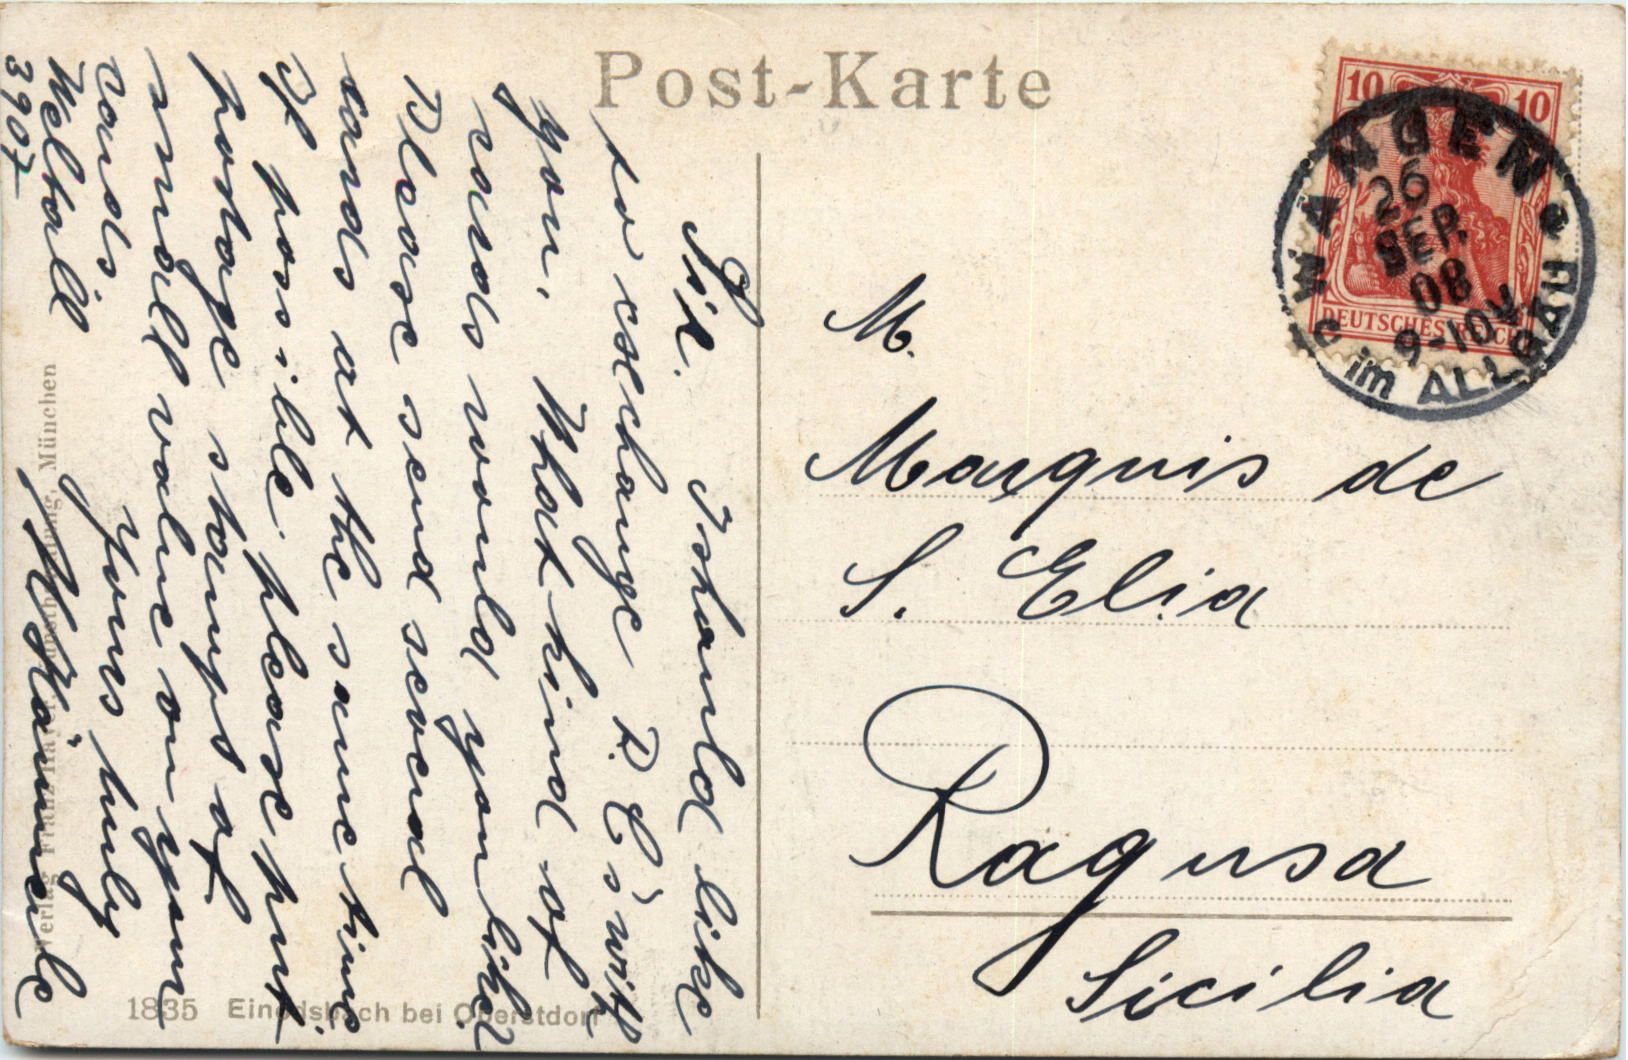 Post-Karte
Sir. I should like
to exchange P. C's with
you. What kind of
cards would you like?
Please send several
cards at the same time
If possible. please put
postage stamps of
small value on your
cards
Yours truly
Weltall
3907
M.
Marquis de
S. Elia
Ragusa
Sicilia
10 10
DEUTSCHES REICH
WANGEN
26
SEP.
08
9-10V
im ALLGÄU
C
1835 Einödsbach bei Oberstdorf
München